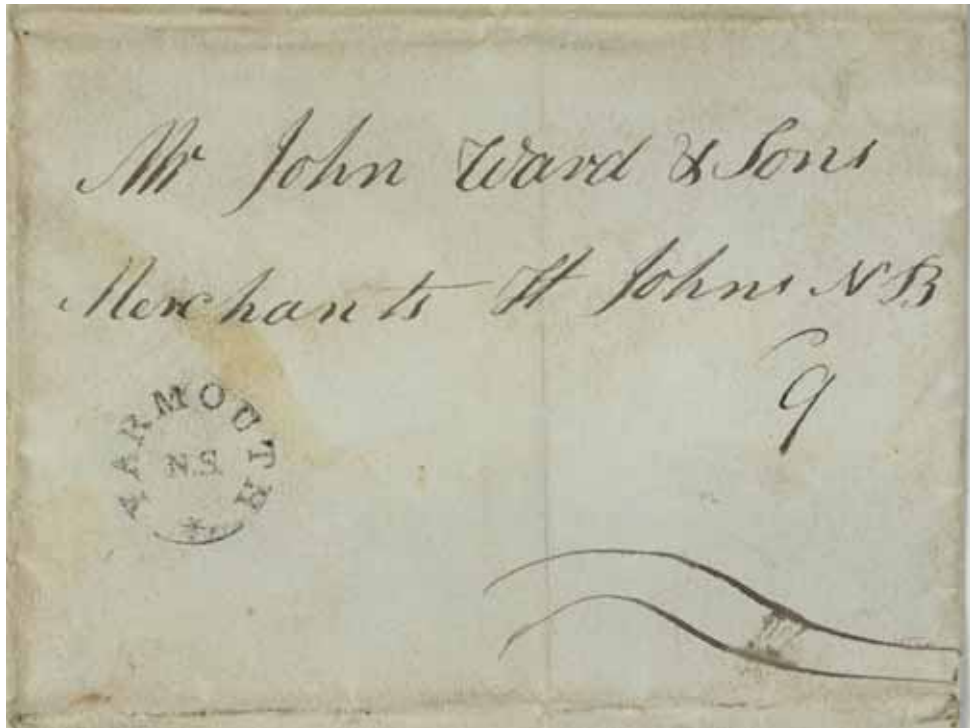 Mr John Ward & Sons
Merchants St Johns N B
9
YARMOUTH
N.S.